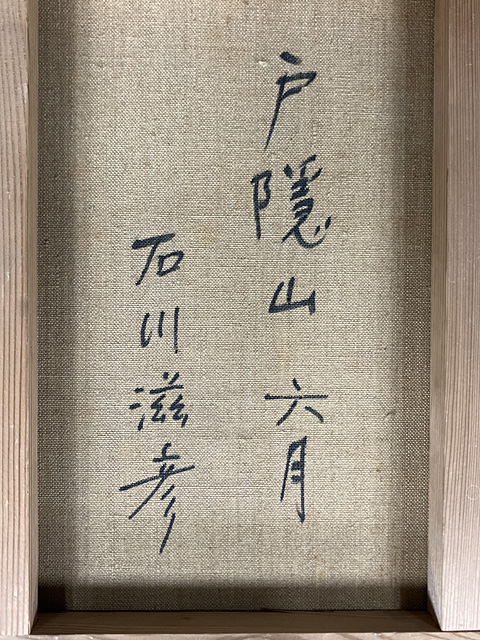 戸隠山 六月
石川滋彦